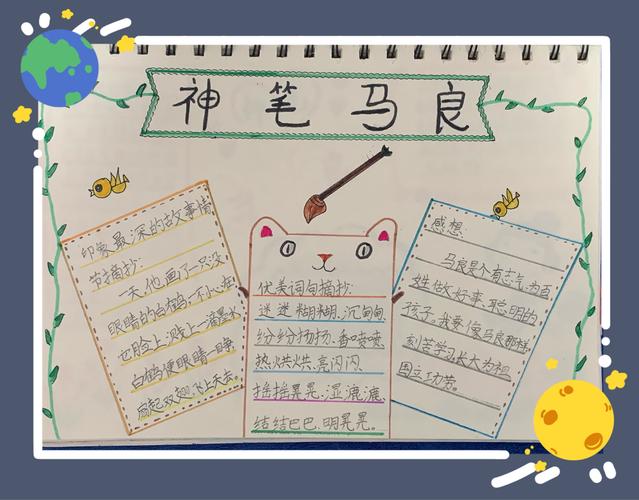 神笔马良
印象最深的故事情
节摘抄:
一天,他画了一只没
眼睛的白鹤,一不小心,在
它脸上溅上一滴墨水,
白鹤便眼睛一睁,
扇起双翅,飞上天去。
优美词句摘抄:
迷迷糊糊、沉甸甸
纷纷扬扬、香喷喷
热烘烘、亮闪闪、
摇摇晃晃、湿漉漉、
结结巴巴、明晃晃。
感想:
马良是个有志气,为百
姓做好事、聪明的
孩子。我要像马良那样,
刻苦学习,长大为祖
国立功劳。